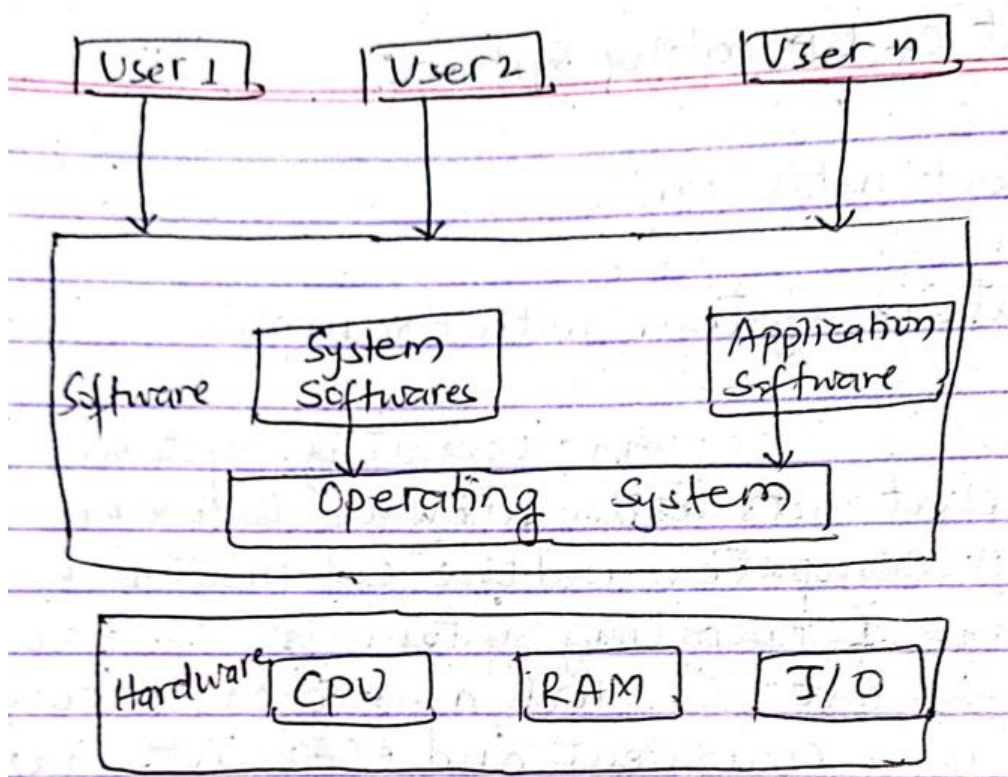 User 1
User 2
User n
Software
System
Softwares
Application
Software
Operating System
Hardware
CPU
RAM
I/O